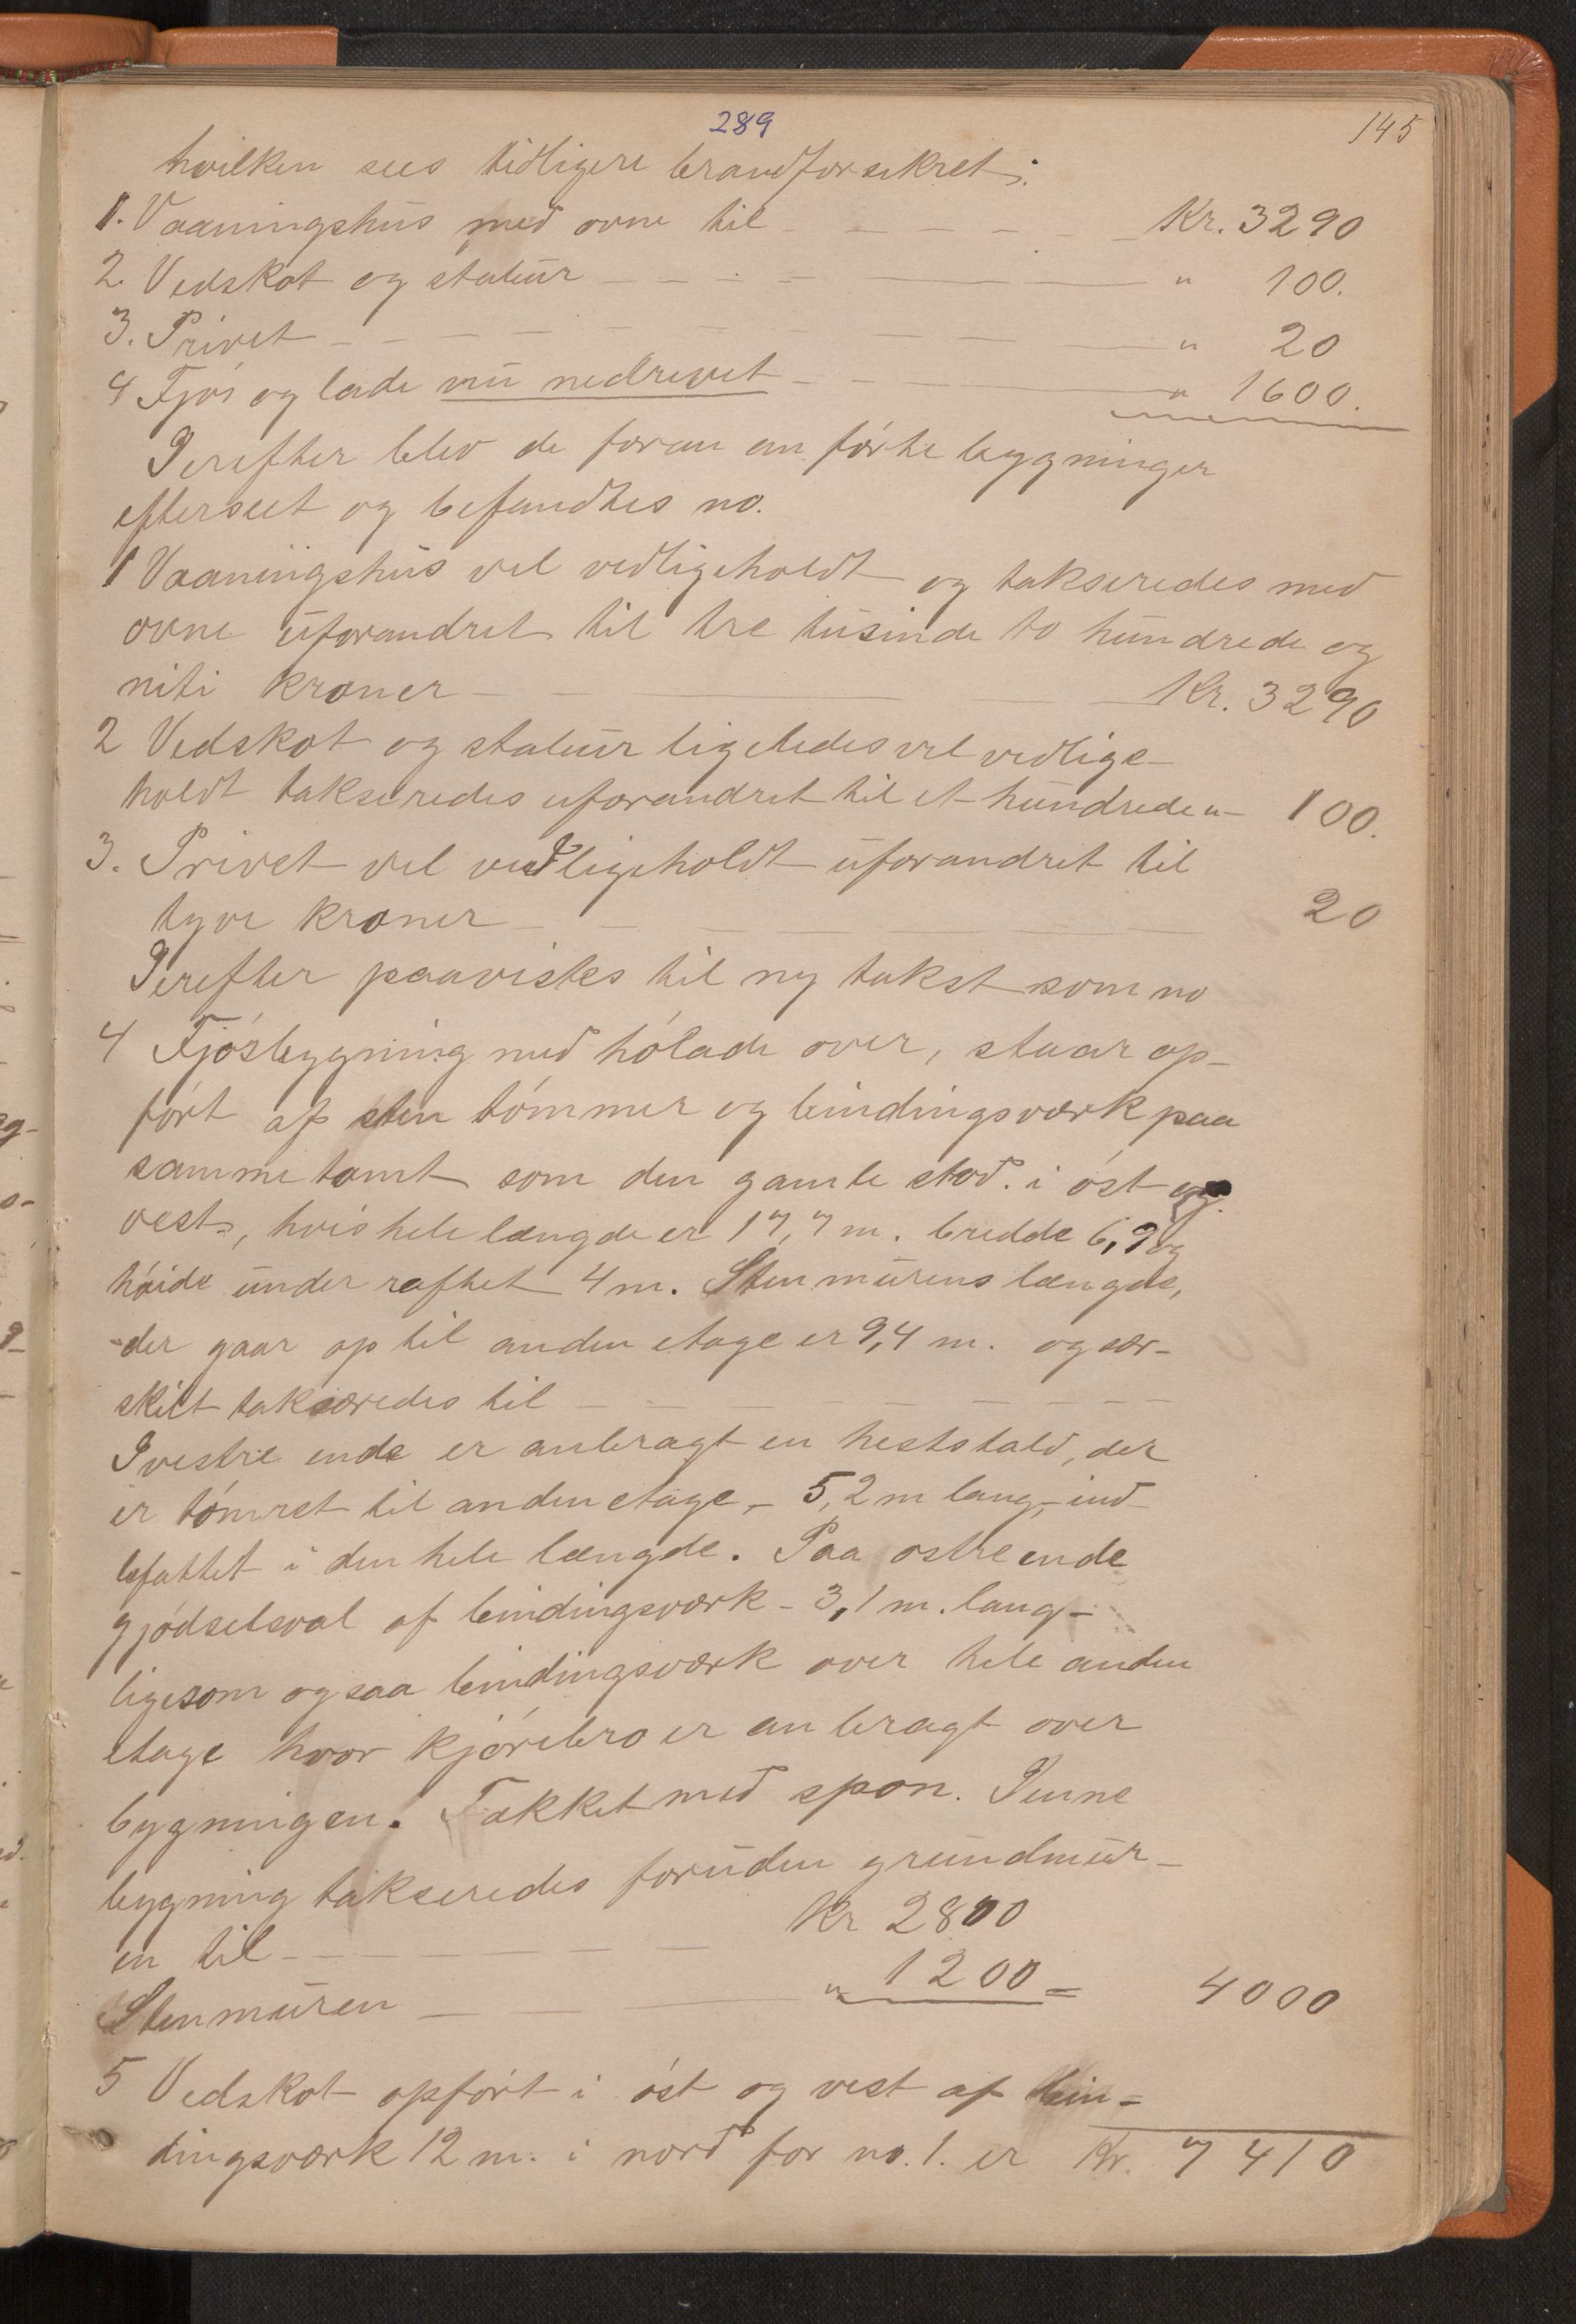 289
145
hvilken sees tidligere brandforsikret:
1. Vaaningshus med ovne til - - - - - - Kr. 3290
2. Vedskot og stabur - - - - - " 100.
3. Privet - - - - - " 20
4 Fjøs og lade nu nedrevet - - - " 1600.
Derefter blev de foran anførte bygninger
efterseet og befandtes no.
1 Vaaningshus vel vedligeholdt og takseredes med
ovne uforandret til tre tusinde to hundrede og
niti kroner - - - Kr. 3290
2 Vedskot og stabur ligeledes vel vedlige-
holdt takseredes uforandret til et hundrede " - 100.
3. Privet vel vedligeholdt uforandret til
tyve kroner - - - 20
Derefter paavistes til ny takst som no
4 Fjøsbygning med hølade over, staar op-
ført af sten tømmer og bindingsværk paa
samme tomt som den gamle stod. i øst og
vest, hvis hele længde er 17,7 m. bredde 6,9 og
høide under raftet 4 m. Stenmurens længde,
der gaar op til anden etage er 9,4 m. og sær-
skilt takseredes til - - - - -
I vestre ende er anbragt en heststald, der
er tømret til anden etage, - 5,2 m lang, - ind
befattet i den hele længde. Paa østre ende
gjødselsval af bindingsværk - 3,1 m. lang -
ligesom ogsaa bindingsværk over hele anden
etage hvor kjørebro er anbragt over
bygningen. Takket med spon. Denne
bygning takseredes foruden grundmur-
en til - - - - - Kr 2800
Stenmuren - - - " 1200 = 4000
5 Vedskot opført i øst og vest af bin-
dingsværk 12 m. i nord for no. 1. er Kr. 7410